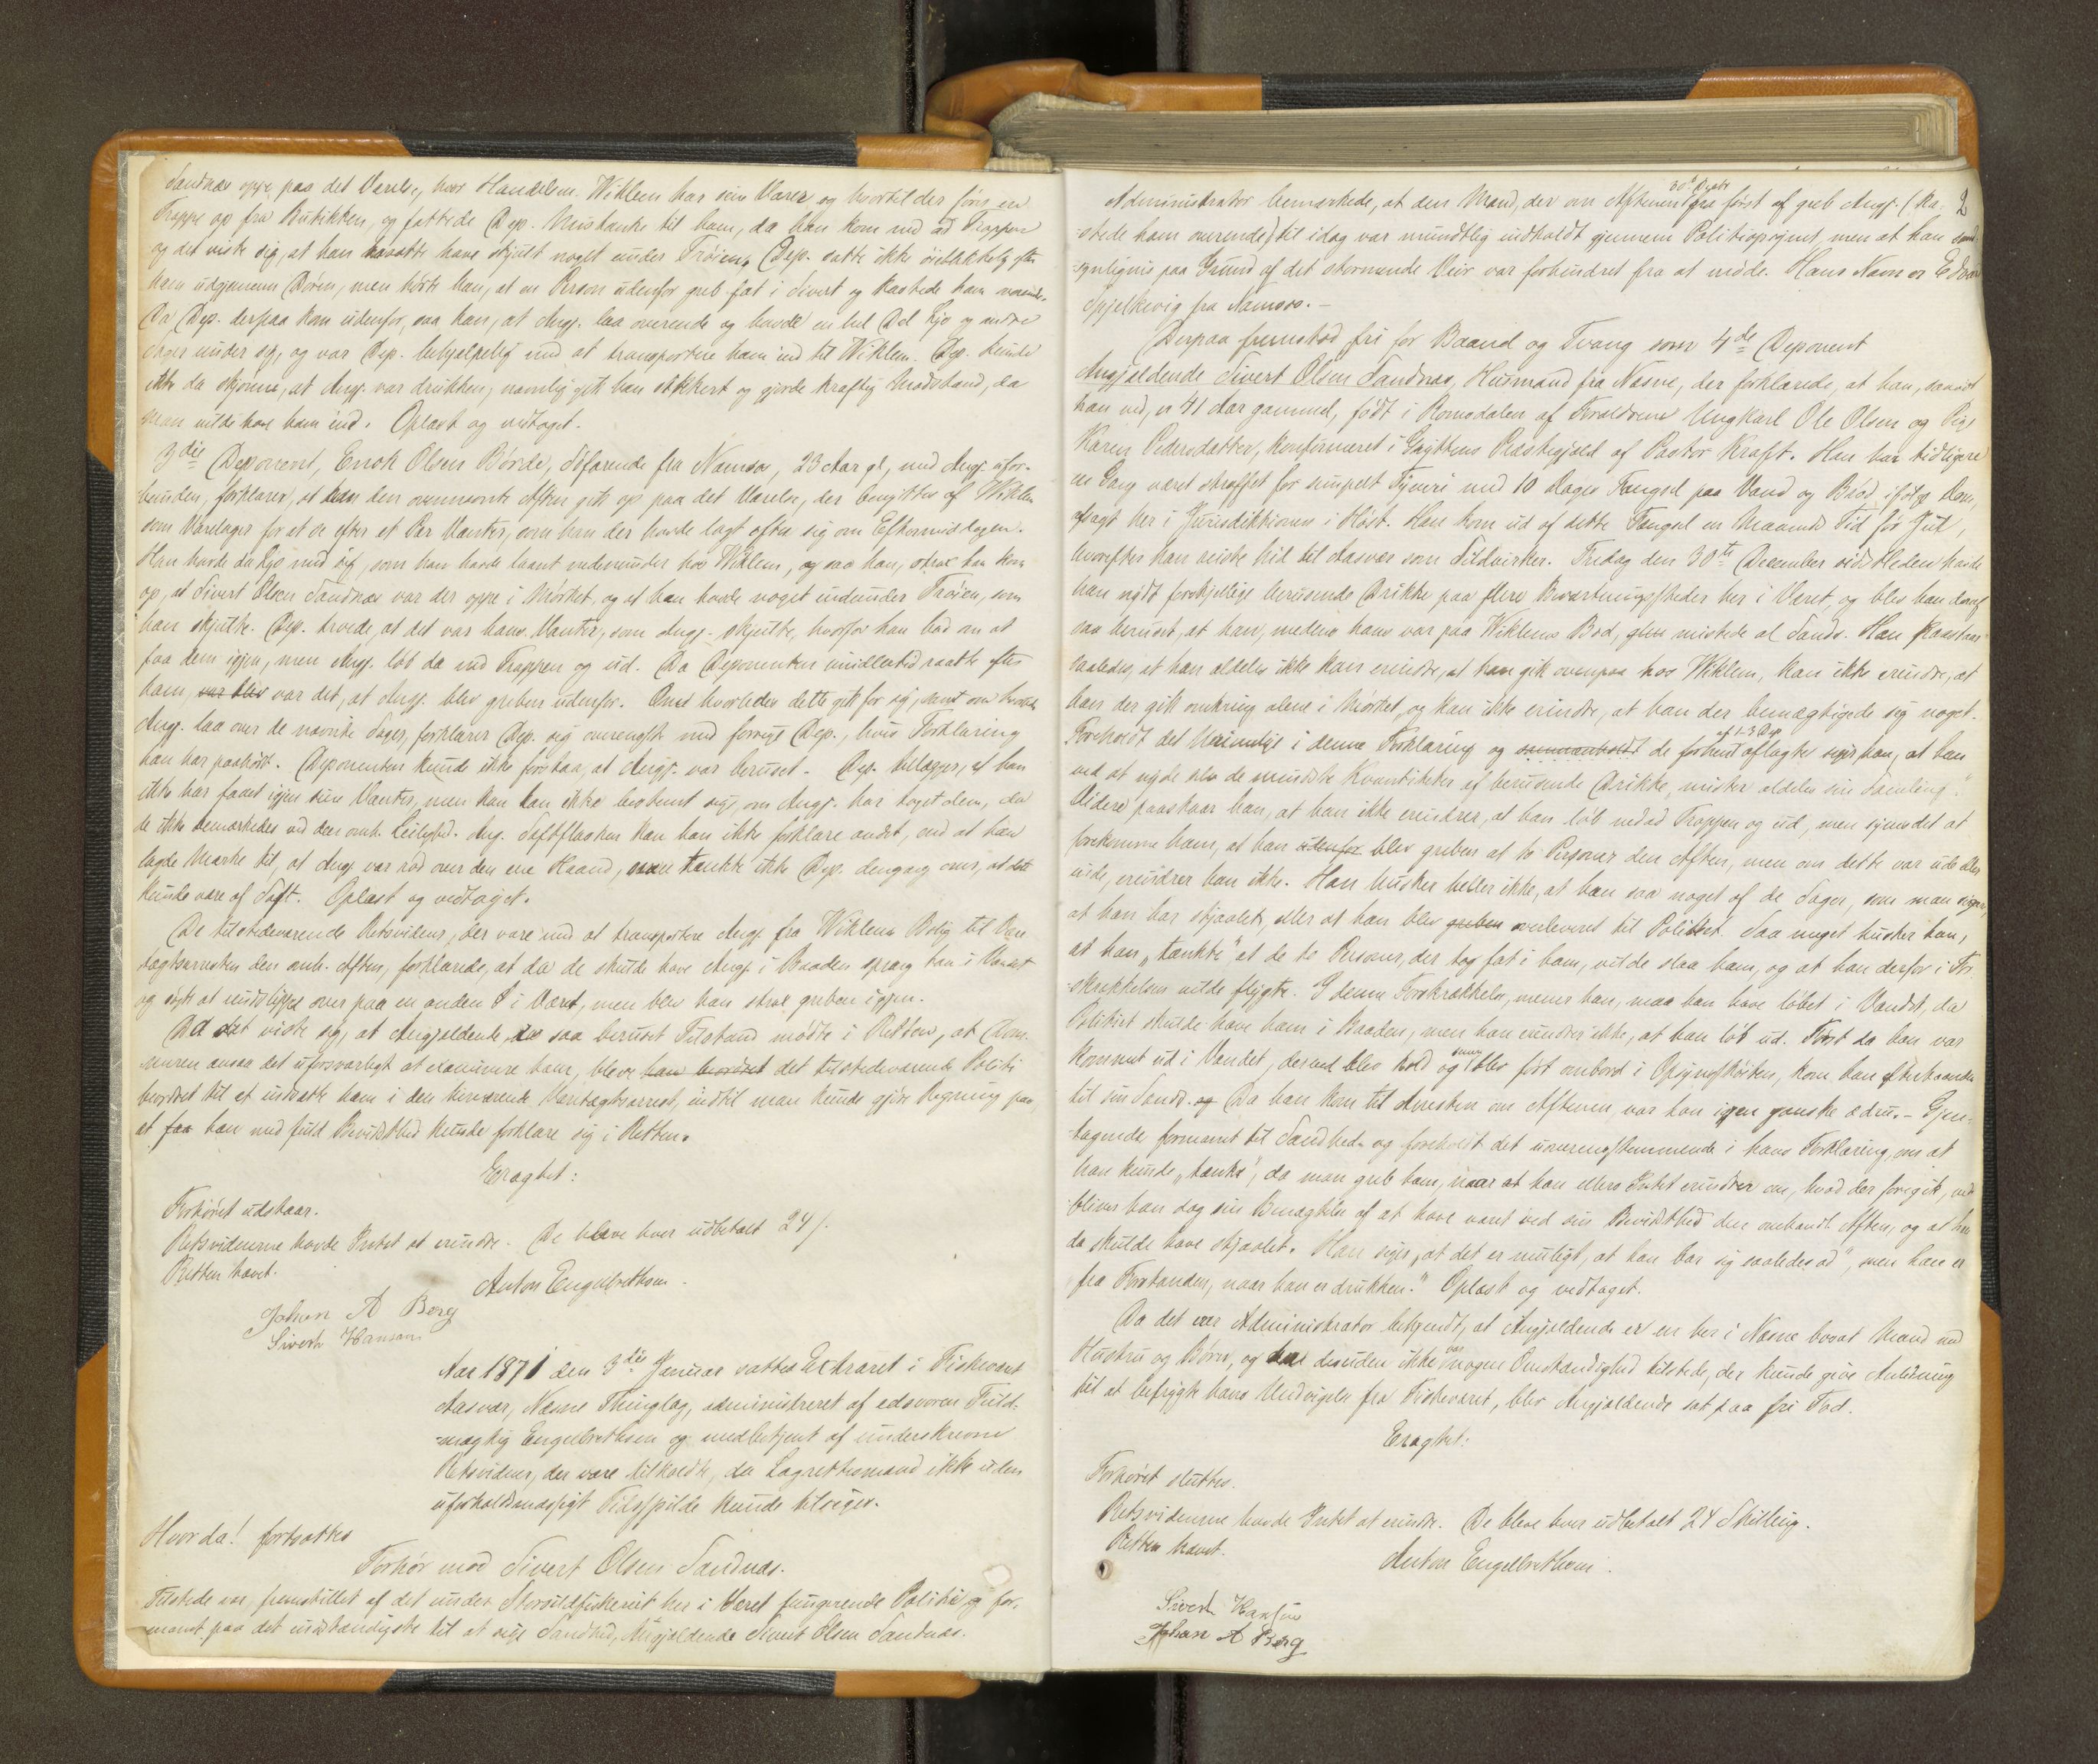 Sandnæs oppe paa det Værelse, hvor Handelsm. Wiklem har sine Varer og hvortil der fører en
Trappe op fra Butikken, og fattede Dep. Mistanke til ham, da han kom ned ad Trappen
og det viste sig, at han maatte have skjult noget under Trøien. Dep. satte ikke øieblikkelig efter
ham udgjennem Døren, men hørte han, at en Person udenfor greb fat i Sivert og kastede ham overende.
Da Dep. derpaa kom udenfor, saa han, at Angj. laa overende og havde en hel Del Lys og andre
Sager under sig, og var Dep. behjælpelig med at transportere ham ind til Wiklem. Dep. kunde
ikke da skjønne, at Angj. var drukken, navnlig gik han sikkert og gjorde kraftig Modstand, da
man vilde have ham ind. Oplæst og vedtaget.
3die Deponent, Enok Olsen Børde, Søfarende fra Namsos, 23 Aar gl., med Angj. ufor-
bunden, forklarer, at han den ovennævnte Aften gik op paa det Værelse, der benyttes af Wiklem
som Varelager for at se efter et Par Vanter, som han der havde lagt efter sig om Eftermiddagen.
Han havde da Lys med sig, som han havde laant nedenunder hos Wiklem, og saa han, strax han kom
op, at Sivert Olsen Sandnæs var der oppe i Mørket, og at han havde noget indunder Trøien, som
han skjulte. Dep. troede, at det var hans Vanter, som Angj. skjulte, hvorfor han bad om at
faa dem igjen, men Angj. løb da ned Trappen og ud. Da Deponenten imidlertid satte efter
ham, var blev var det, at Angj. blev greben udenfor. Om hvorledes dette gik for sig, samt om hvorledes
Angj. laa over de nævnte Sager, forklarer Dep. sig overensst. med forrige Dep., hvis Forklaring
han har paahørt. Deponenten kunde ikke forstaa, at Angj. var beruset. Dep. tillægger, at han
ikke har faaet igjen sine Vanter, men han kan ikke bestemt sige, om Angj. har taget dem, da
de ikke bemærkedes ved den omh. Leilighed. Ang. Saftflasken kan han ikke forklare andet, end at han
lagde Mærke til, at Angj. var rød over den ene Haand, men tænkte ikke Dep. dengang over, at dette
kunde være af Saft. Oplæst og vedtaget.
De tilstedeværende Retsvidner, der vare med at transportere Angj. fra Wiklems Bolig til Vare-
tægtsarresten den omh. Aften, forklarede, at da de skulde have Angj. i Baaden sprang han i Vandet
og søgte at undslippe over paa en anden Ø i Været, men blev han strax greben igjen.
Ad det viste sig, at Angjældende i saa beruset Tilstand mødte i Retten, at Dom-
meren ansaa det uforsvarligt at examinere ham, bleve han beordret det tilstedeværende Politi
beordret til at indsætte ham i den herværende Varetægtsarrest, indtil man kunde gjøre Regning paa,
at faa han med fuld Bevidsthed kunde forklare sig i Retten.
Eragtet:
Forhøret udstaar.
Retsvidnerne havde Intet at erindre. De bleve hver udbetalt 24 /.
Retten hævet.
Anton Engelbrethsen.
Johan A Berg
Siverth Hansen
Aar 1871 den 3die Januar sattes Extraret i Fiskeværet
Aasvær, Næsne Thinglag, administreret af edsvoren Fuld-
mægtig Engelbrethsen og medbetjent af underskrevne
Retsvidner, der vare tilkaldte, da Lagrettesmænd ikke uden
uforholdsmæssigt Tidsspilde kunde tilsiges.
Hvor da! fortsattes
Forhør mod Sivert Olsen Sandnæs.
Tilstede var, fremstillet af det under Storsildfiskeriet her i Været fungerende Politi og for-
manet paa det indstændigste til at sige Sandhed, Angjældende Sivert Olsen Sandnæs.
2
Administrator bemærkede, at den Mand, der om Aftenen 30te Decbr fra først af greb Angj. (ka-
stede ham overende) til idag var mundtlig indkaldt gjennem Politiopsynet, men at han sand-
synligvis paa Grund af det stormende Veir var forhindret fra at møde. Hans Navn er Edvard
Spjelkevig fra Namsos.-
Derpaa fremstod fri for Baand og Tvang som 4de Deponent
Angjældende Sivert Olsen Sandnæs, Husmand fra Næsne, der forklarede, at han, saavidt
han ved, er 41 Aar gammel, født i Romsdalen af Forældrene Ungkarl Ole Olsen og Pige
Karen Pedersdatter, konfirmeret i Præstegjæld af Pastor Kraft. Han har tidligere
en Gang været straffet for simpelt Tyveri med 10 Dages Fængsel paa Vand og Brød ifølge Dom,
afsagt her i Jurisdiktionen i Høst. Han kom ud af dette Fængsel en Maaneds Tid før Jul,
hvorefter han reiste hid til Aasvær som Sildvirker. Fredag den 30te December sidstleden havde
han nydt forskjellige berusende Drikke paa flere Beværtningssteder her i Været, og blev han deraf
saa beruset, at han, medens han var paa Wiklems Bod, ganske mistede al Sands. Han paastaar
saaledes, at han aldeles ikke kan erindre, at han gik ovenpaa hos Wiklem, kan ikke erindre, at
han der gik omkring alene i Mørket, og kan ikke erindre, at han der bemægtigede sig noget.
Foreholdt det Urimelige i denne Forklaring og sammenholdt de forhen af 1-3 Dep. aflagte siger han, at han
ved at nyde selv de mindste Kvantiteter af berusende Drikke, mister aldeles sin Samling.
Videre paastaar han, at han ikke erindrer, at han løb nedad Trappen og ud, men synes det at
forekomme ham, at han udenfor blev greben af to Personer den Aften, men om dette var ude eller
inde, erindrer han ikke. Han husker heller ikke, at han saa noget af de Sager, som man siger,
at han har stjaalet, eller at han blev greben overleveret til Politiet. Saa meget husker han,
at han „tænkte" at de to Personer, der tog fat i ham, vilde slaa ham, og at han derfor i For-
skrækkelsen vilde flygte. I denne Forskrækkelse, mener han, maa han have løbet i Vandet, da
Politiet skulde have ham i Baaden, men han erindrer ikke, at han løb ud. Først da han var
kommet ud i Vandet, derved blev kold og blev ført ombord i Opsynsskøiten, kom han efterhaanden
til sin Sands. og Da han kom til Arresten om Aftenen, var han igjen ganske ædru. - Gjen-
tagende formanet til Sandhed og foreholdt det uoverensstemmende i hans Forklaring, om at
han kunde „tænke", da man greb ham, naar at han ellers Intet erindrer om, hvad der foregik, ved-
bliver han dog sin Benægtelse af at have været ved sin Bevidsthed den omhandl. Aften, og at han
da skulde have stjaalet. Han siger, „at det er muligt, at han bar sig saaledes ad", men han er
„fra Forstanden, naar han er drukken." Oplæst og vedtaget.
Da det var Administrator bekjendt, at Angjældende er en her i Næsne bosat Mand med
Hustru og Børn, og der desuden ikke var nogen Omstændighed tilstede, der kunde give Anledning
til at befrygte hans Undvigelse fra Fiskeværet, blev Angjældende sat paa fri Fod.
Eragtet:
Forhøret sluttes.
Retsvidnerne havde Intet at erindre. De bleve hver udbetalt 24 Skilling.
Retten hævet.
Anton Engelbrethsen.
Siverth Hansen
Johan A Berg